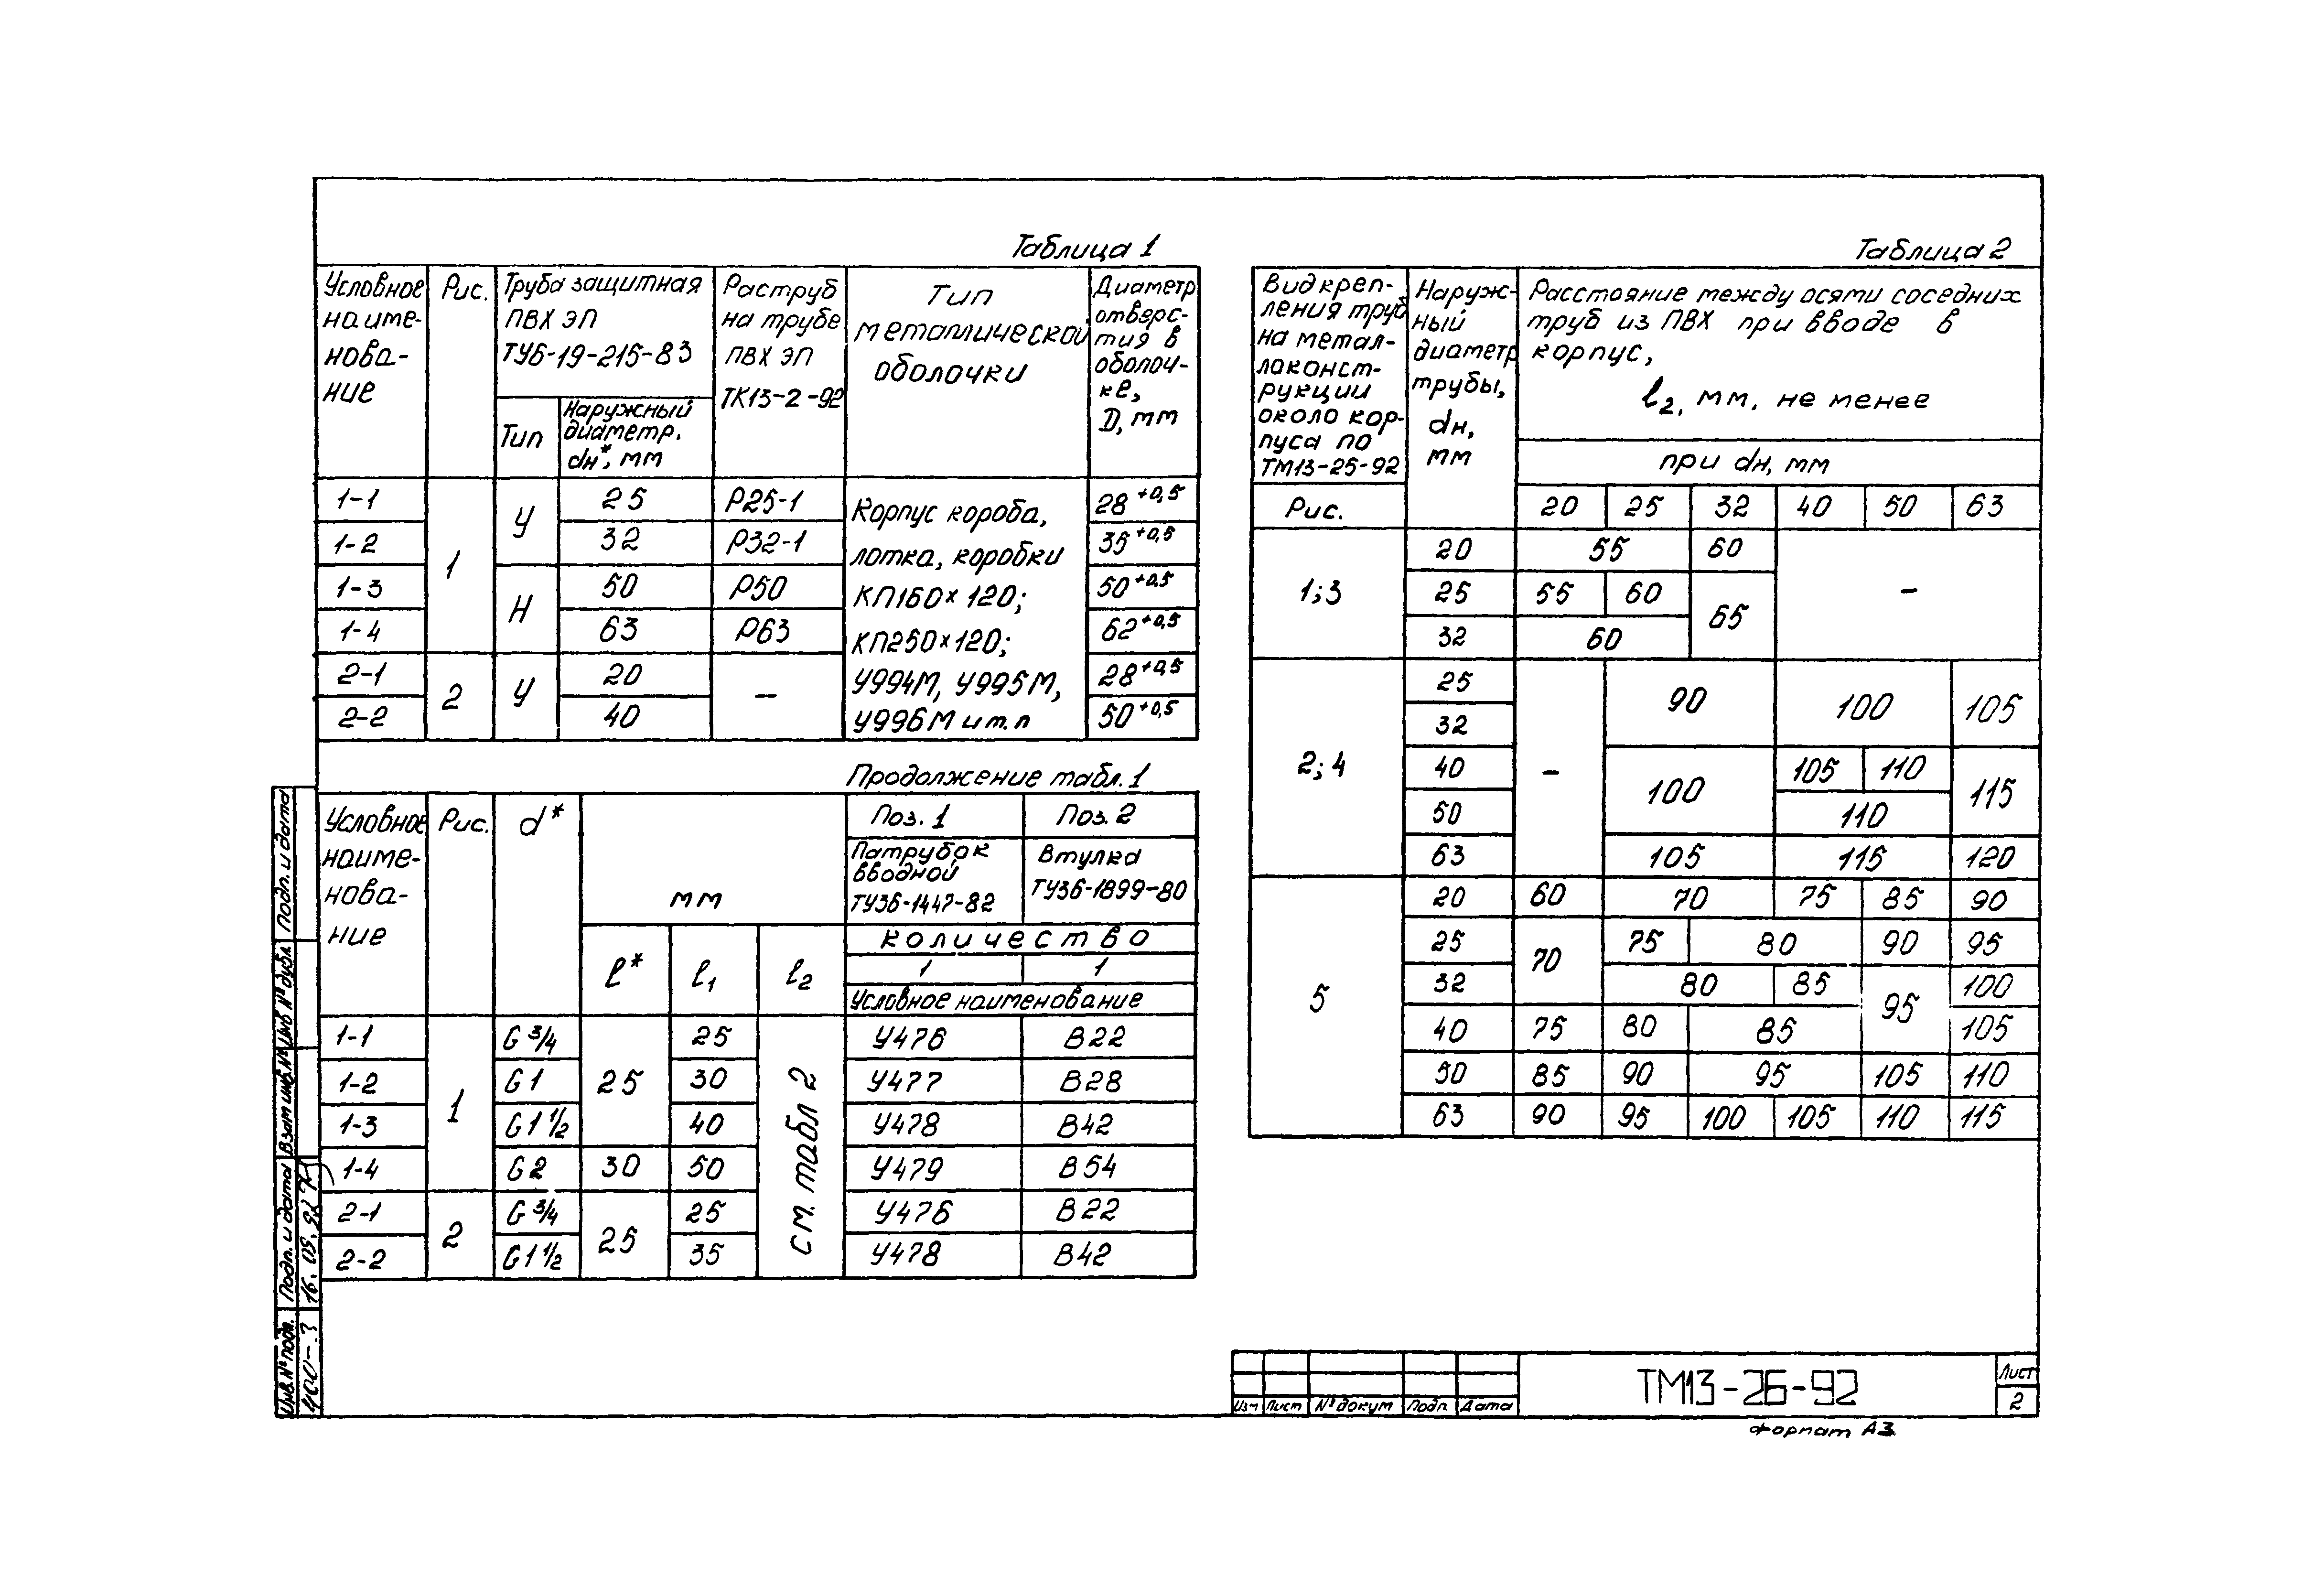 Таблица 1
Условное наиме- нова- ние
Рис.
Труба защитная
ПВХ ЭП
ТУ6-19-215-83
Раструб на трубе ПВХ ЭП ТК13-2-92
Тип металлической оболочки
Диаметр отверс- тия в оболоч- ке, D, мм
Тип
Наружный диаметр. dн*, мм
1-1 1 У 25 Р25-1 28+0,5
1-2 32 Р32-1 35+0,5
1-3 Н 50 Р50 50+0,5
1-4 63 Р63 62+0,5
2-1 2 У 20 – 28+0,5
2-2 40 50+0,5
Корпус короба,
лотка, коробки
КП160×120;
КП250×120;
У994М, У995М,
У996М и т.п
Продолжение табл. 1
Условное наиме- нова- ние
Рис.
d*
мм
Поз. 1 Поз. 2
Патрубок вводной ТУ36-1447-82
Втулка ТУ36-1899-80
количество
ℓ* ℓ1 ℓ2
1 1
Условное наименование
1-1 1 G 3/4 25 25 см. табл 2 У476 В22
1-2 G 1 30 У477 В28
1-3 G 1 1/2 40 У478 В42
1-4 G 2 30 50 У479 В54
2-1 2 G 3/4 25 25 У476 В22
2-2 G 1 1/2 35 У478 В42
Таблица 2
Вид креп-
ления труб
на метал-
локонст-
рукции
около кор-
пуса по
ТМ13-25-92
Рис.
Наруж-
ный
диаметр
трубы,
dн,
мм
Расстояние между осями соседних
труб из ПВХ при вводе в
корпус,
ℓ2, мм, не менее
при dн, мм
20 25 32 40 50 63
1;3 20 55 60 –
25 55 60 65
32 60
2;4 25 – 90 100 105
32
40 100 105 110 115
50 110
63 105 115 120
5 20 60 70 75 85 90
25 70 75 80 90 95
32 80 85 95 100
40 75 80 85 105
50 85 90 95 105 110
63 90 95 100 105 110 115
Подп. и дата
Инв № дубл
Взам инв. №
Подп. и дата
16.05.92
Инв. № подл.
Изм Лист № докум Подп Дата
ТМ13-26-92
Лист
2
формат А3